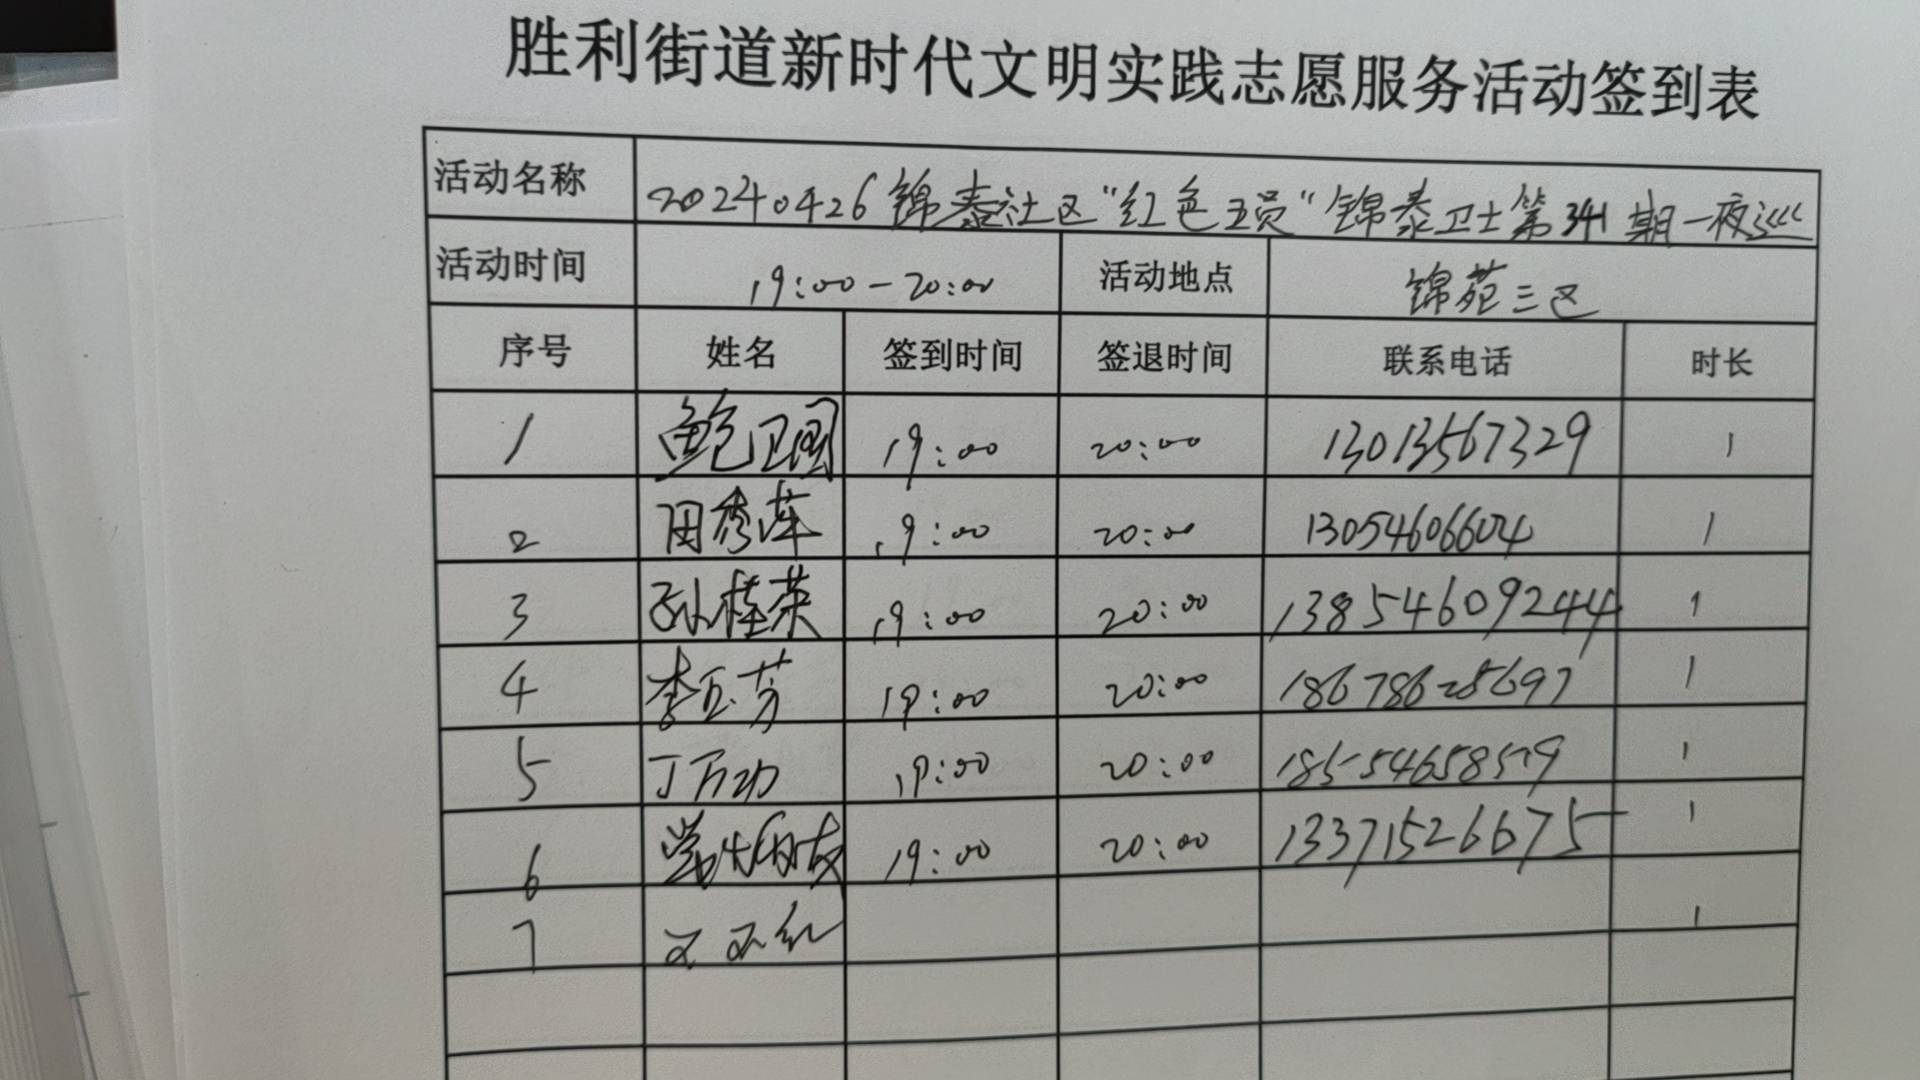 胜利街道新时代文明实践志愿服务活动签到表
活动名称 20240426锦泰社区“红色卫员”锦泰卫士第341期一夜巡
活动时间 19:00-20:00 活动地点 锦苑三区
序号 姓名 签到时间 签退时间 联系电话 时长
1 鲍卫国 19:00 20:00 13013567329 1
2 田秀萍 19:00 20:00 13054606604 1
3 孙桂荣 19:00 20:00 13854609244 1
4 李玉芳 19:00 20:00 18678628697 1
5 丁万功 19:00 20:00 18554658579 1
6 19:00 20:00 13371526675 1
7 王玉红 1